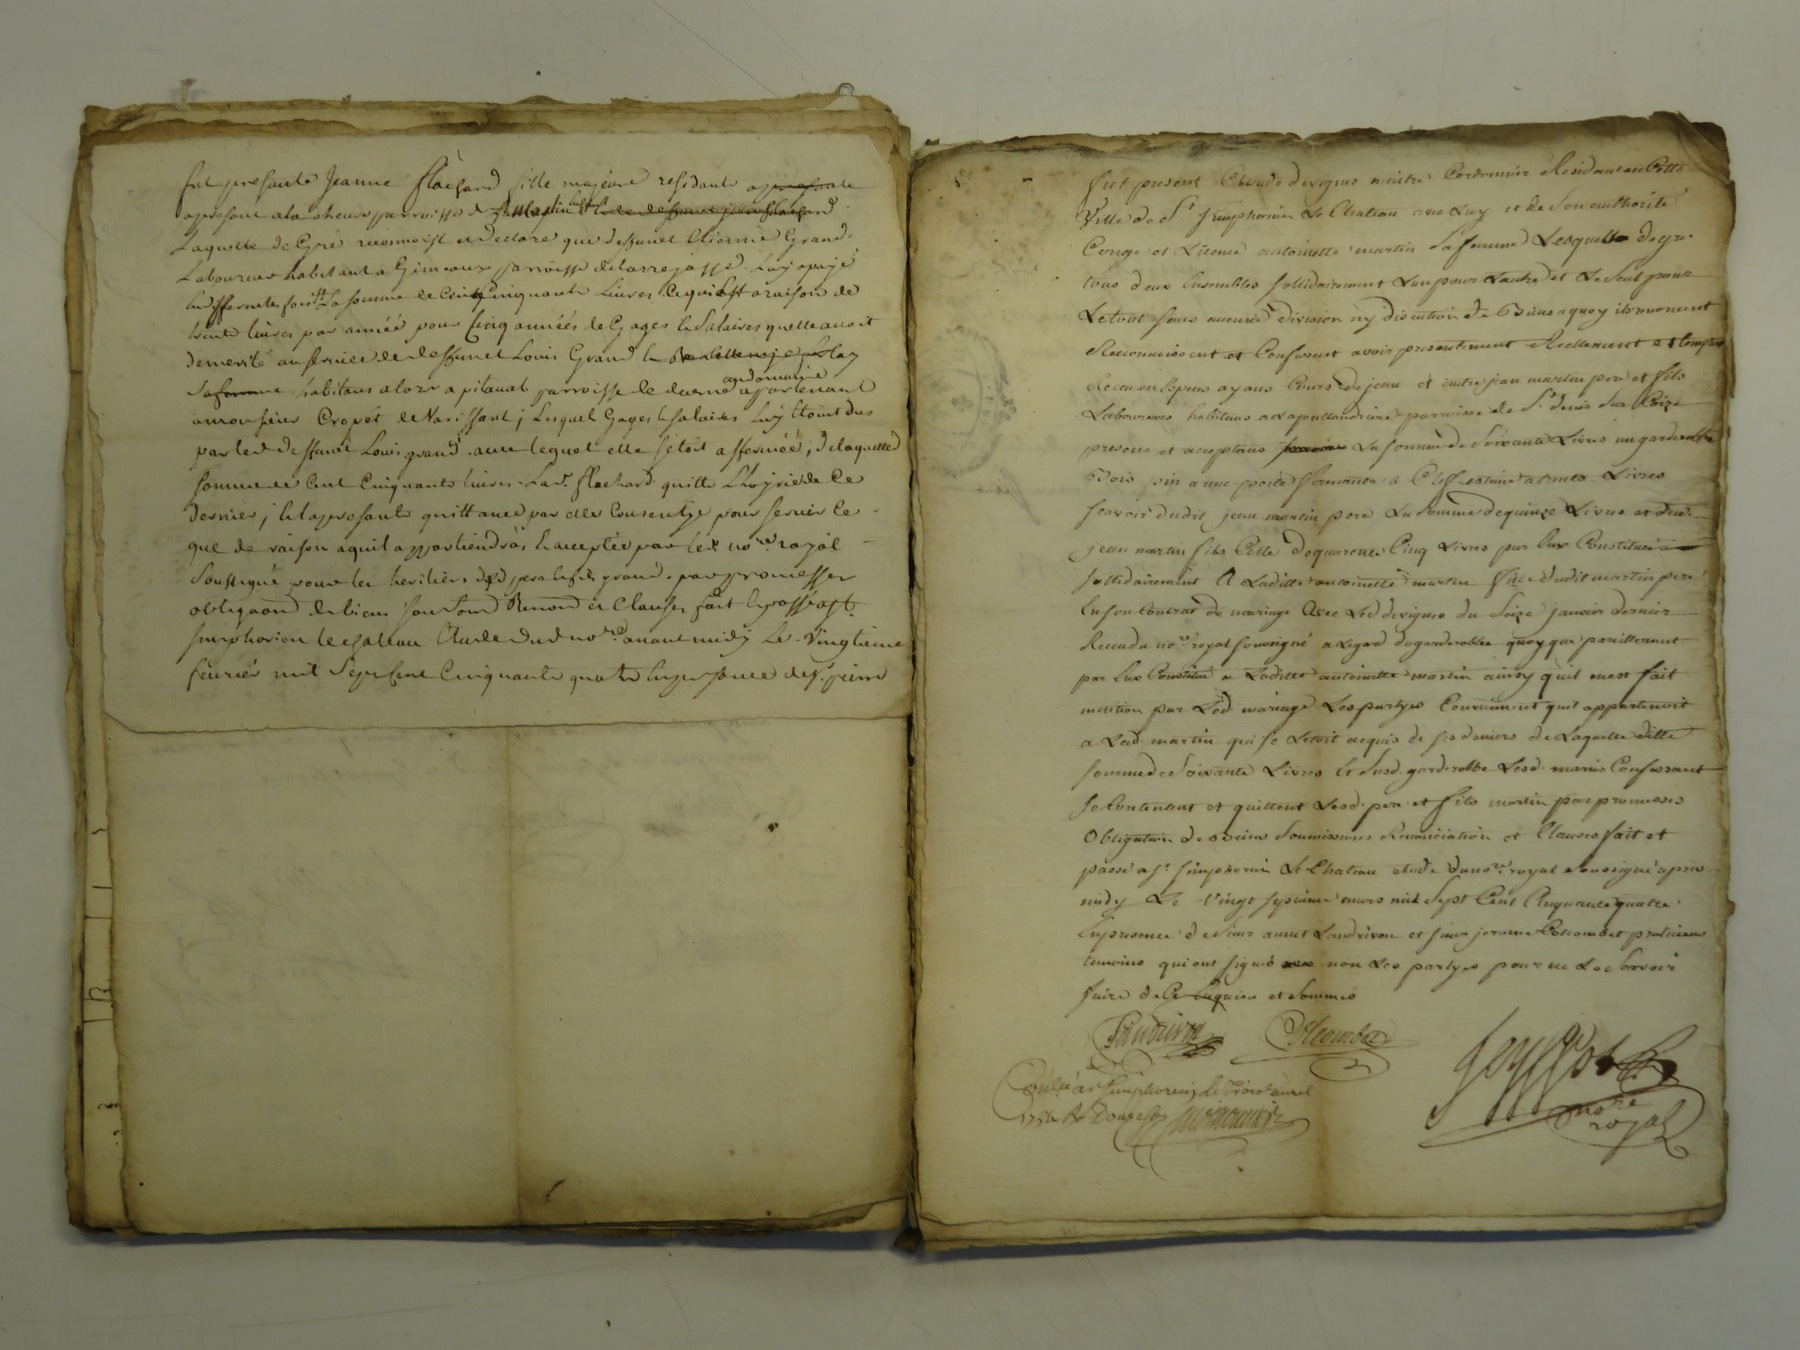 fut presente Jeanne flachard fille majeure residante
apresent a la parroisse de
Laquelle de Gré reconnoist et declare que deffunct Etienne Grand
Laboureur habitant a Gimeaux parroisse de larrajasse Luy a payé
en differentes fois la somme de Cent Cinquante Livres Ce qui Est a raison de
trente livres par année pour Cinq années de Gages et Salaires quelle avoit
demerité au service de deffunct Louis Grand
sa femme habitans alors a pitaval parroisse de au domaine apartenant
a monsieur Croppet de Varissant ; Lesquels Gages et salaires Luy Etoint dus
par led deffunt Louis grand avec lequel elle s'etoit affermée, de laquelle
somme de Cent Cinquante livres Lad. flachard quitte L'hoyrie de Ce
dernier ; et la presente quittance par elle Consentye pour servir Ce
que de raison a qui il appartiendra, et acceptée par led nore royal
Soussigné pour les heritiers grand par promesses
obligaon de biens Renon et Clauses fait et passé a st
simphorien le chateau Etude dud nore avant midy Le vingtieme
fevrier mil sept cent Cinquante quatre En presence de sr. pierre
fut present Claude devignes maitre Cordonnier Residant en Cette
Ville de St simphorien Le Chateau avec Luy et de Son authorité
Congé et Licence antoinette martin sa femme Lesquels de gré
tous deux Ensembles sollidairement L'un pour L'autre et Le Seul pour
Le tout sans aucune division ny discution de Biens a quoy ils renoncent
Reconnoissent et Confessent avoir presentement Reellement et Comptant
Receu en Especes ayans Cours de jean et autre jean martin pere et fils
Laboureurs habitans a parroisse de St denis Sur Coize
presens et acceptans La somme de Soixante Livres un garderobbe
Bois pin a une porte fermante a Clef estimé a trente Livres
scavoir dudit jean martin pere La somme de quinze Livres et dud.
jean martin fils Celle de quarante Cinq Livres par Eux Constituée
sollidairement A Laditte antoinette martin fille dudit martin pere
En son Contrat de mariage Avec Led devignes du Seize janvier dernier
Receu du nore royal soussigné a Legard du garderobbe quoy que pareillement
par Eux Constitué a Laditte antoinette martin ainsy qu'il en est fait
mention par Led. mariage Les partyes Conviennent qu'il appartenoit
a Lad. martin qui se L'etoit acquis de ses deniers de Laquelle ditte
somme de Soixante Livres et Susd. garderobbe Lesd. mariés Confessant
se Contentent et quittent Lesd. pere et fils martin par promesses
Obligation de Biens Soumissions Renonciation et Clauses fait et
passé a St simphorien Le Chateau etude du nore. royal soussigné apres
midy Le Vingt septieme mars mil Sept Cent Cinquante quatre
En presence de Sieur annet Landrivon et sieur jerome Colcombet praticiens
temoins qui ont signé non Les partyes pour ne Le Scavoir
faire de Ce Enquises et Sommés
Landrivon Colcombet
nore
royal
simphorien Le trois avril
1754